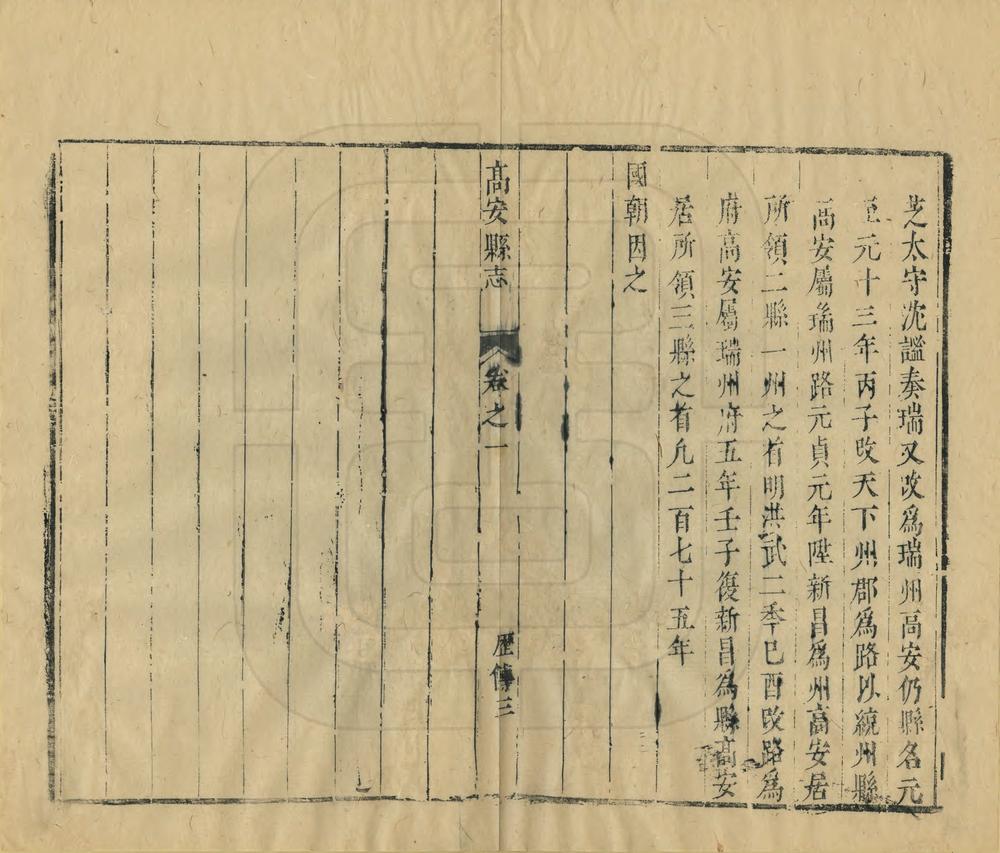 芝太守沈謐奏瑞又改爲瑞州高安仍縣名元
至元十三年丙子改天下州郡爲路以統州縣
高安屬瑞州路元貞元年陞新昌爲州高安居
所領二縣一州之首明洪武二季已酉改路爲
府高安屬瑞州府五年壬子復新昌爲縣高安
居所領三縣之首凡二百七十五年
國朝因之
高安縣志
卷之一
歷傳三